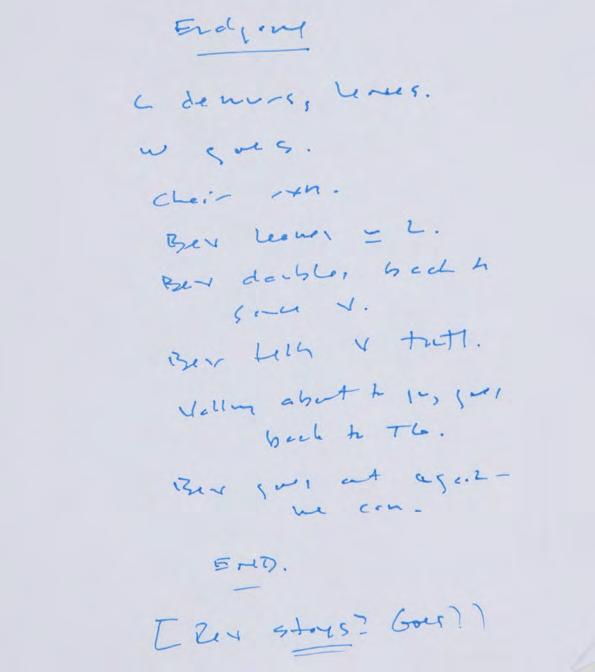 Endgame
C demurs, leaves.
W goes.
Chair rxn.
Bev leaves = 2.
Bev doubles back to
save V.
Bev tells V truth.
Valling about to go, goes
back to TG.
Bev goes out again –
we can.
END.
[Bev stays? Goes?]